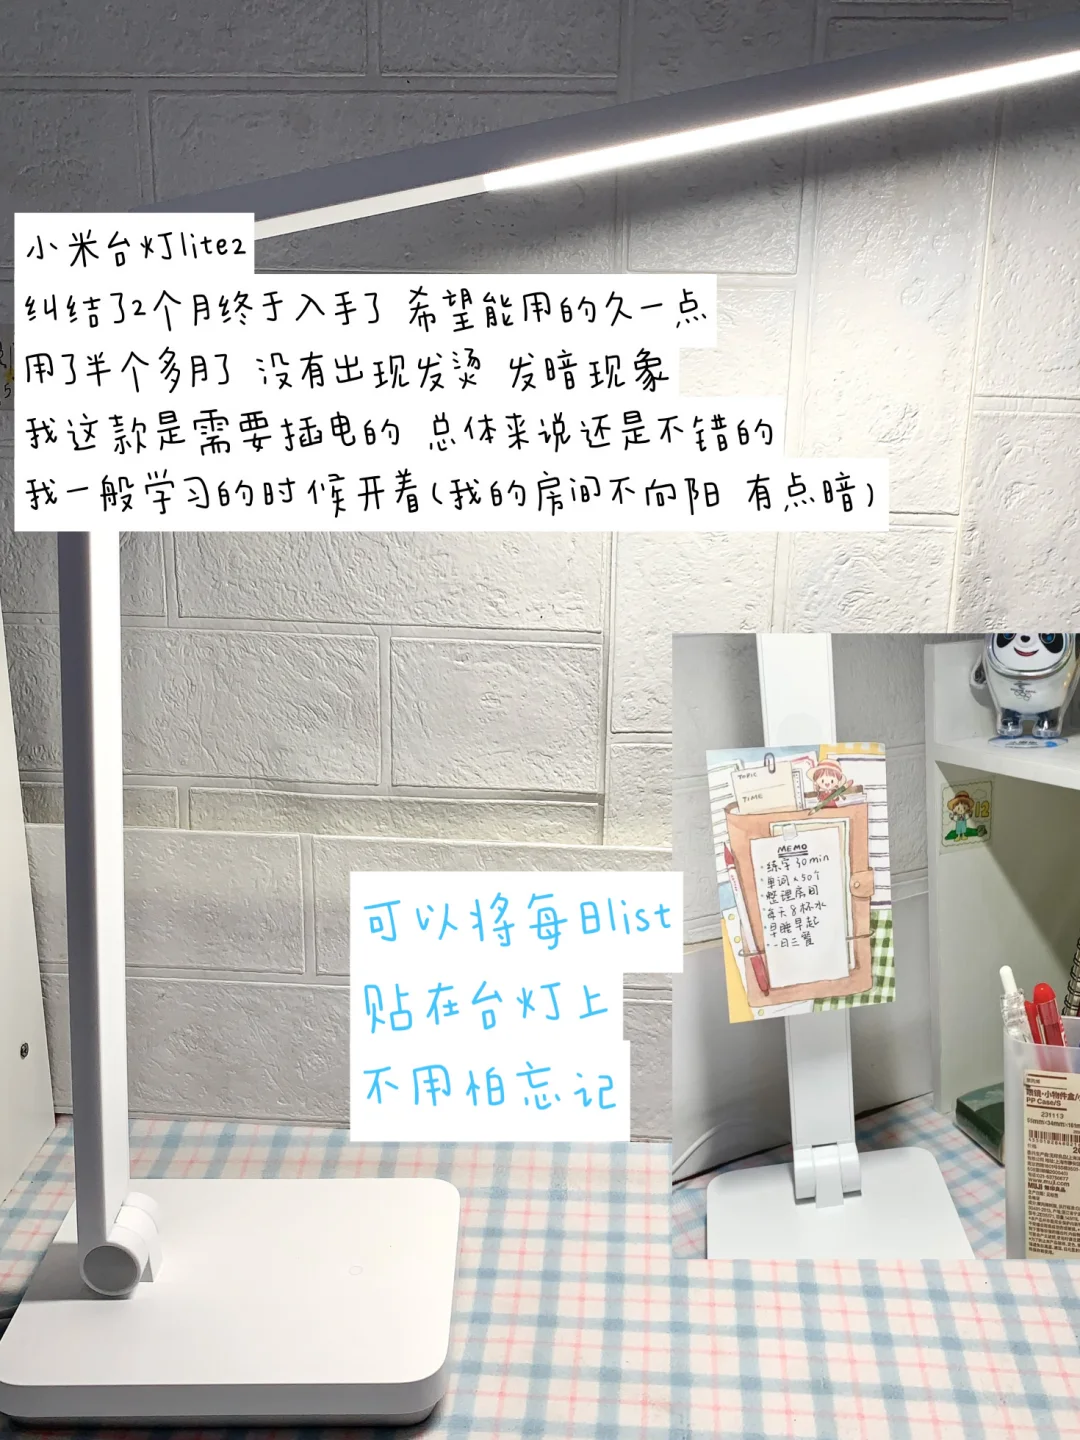 小米台灯lite2
纠结了2个月终于入手了 希望能用的久一点
用了半个多月了 没有出现发烫 发暗现象
我这款是需要插电的 总体来说还是不错的
我一般学习的时候开着(我的房间不向阳 有点暗)
TOPIC
TIME
MEMO
·练字30min
·单词×50个
·整理房间
·每天8杯水
·早睡早起
·一日三餐
12
可以将每日list
贴在台灯上
不用怕忘记
PP Case/S
231113
www.muji.com
MUJI 無印良品